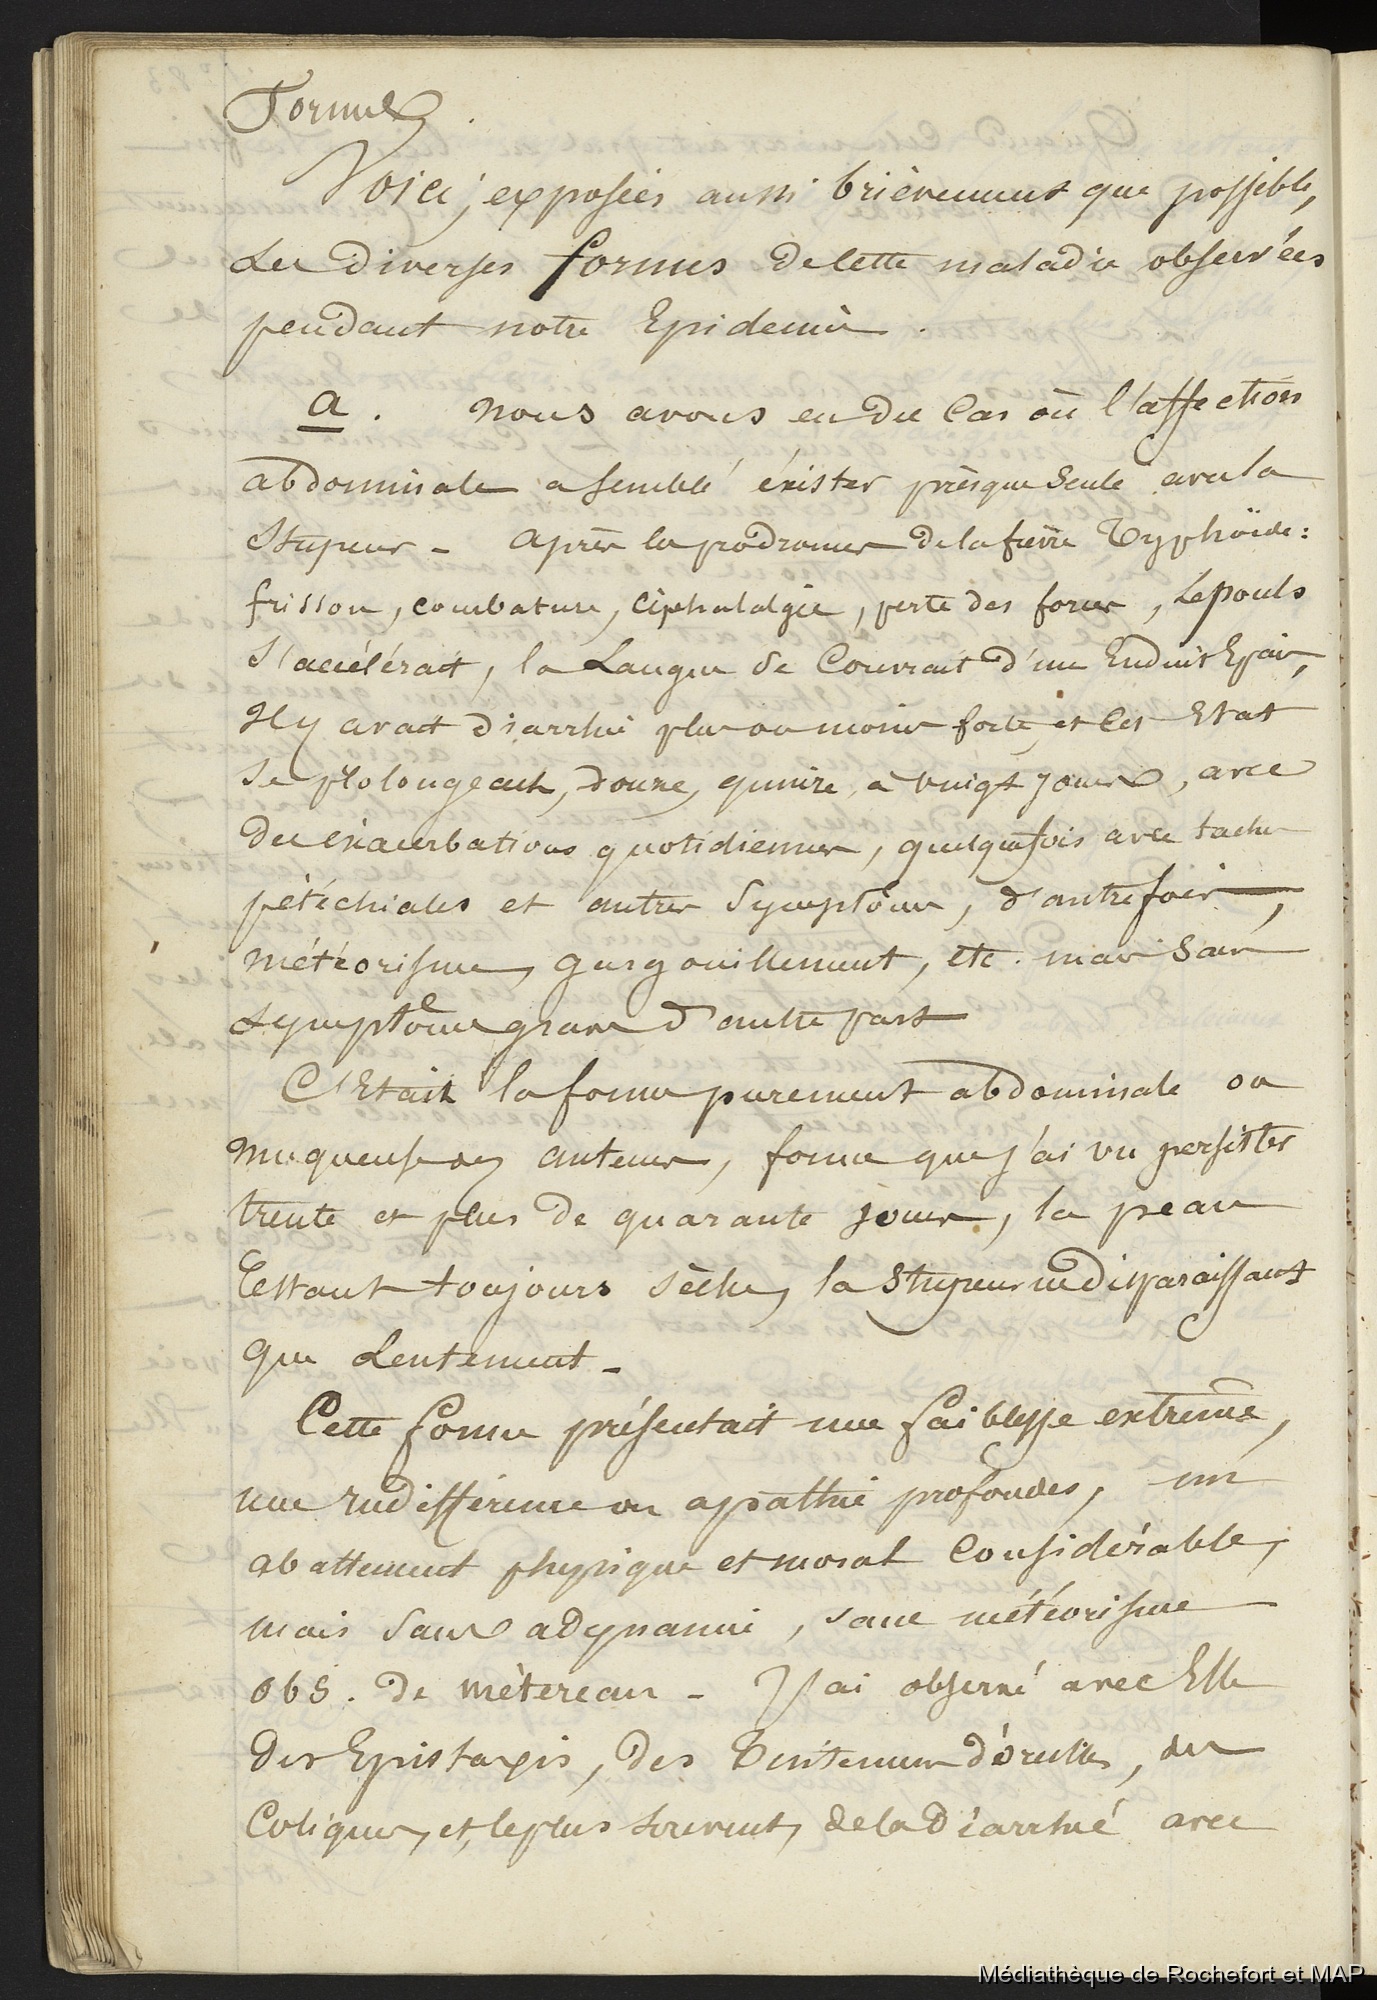 Formes.
Voici, exposées aussi brièvement que possible,
Les diverses formes de cette maladie observées
pendant notre Epidemie.
a. Nous avons eu des Cas où l'affection
abdominale a semblé éxister prèsque Seule avec la
Stupeur - après les prodromes de la fièvre Typhoïde:
frisson, courbature, Céphalalgie, perte des forces, Le pouls
S'accélérait, la Langue se Couvrait d'un Enduit Epais,
Il y avait diarrhée plus ou moins forte, et Cet Etat
se prolongeait, douze, quinze, à vingt jours, avec
des éxacerbations quotidiennes, quelquefois avec taches
pétéchiales et autres Symptômes, d'autrefois,
météorisme, gargouillement, etc. mais Sans
Symptôme grave d'autre part
C'Etait la forme purement abdominale ou
muqueuse des auteurs, forme que j'ai vu persister
trente et plus de quarante jours, la peau
restant toujours sèche, la Stupeur ne disparaissant
que Lentement -
Cette forme présentait une faiblesse extrême,
une Indifférence ou apathie profondes, un
abattement physique et moral Considérable,
mais Sans adynamie, sans météorisme
obs. de mètereau - J'ai observé avec Elle
des Epistaxis, des Tintemens d'oreilles, des
Coliques, et, le plus souvent, de la Diarrhée avec
Médiathèque de Rochefort et MAP